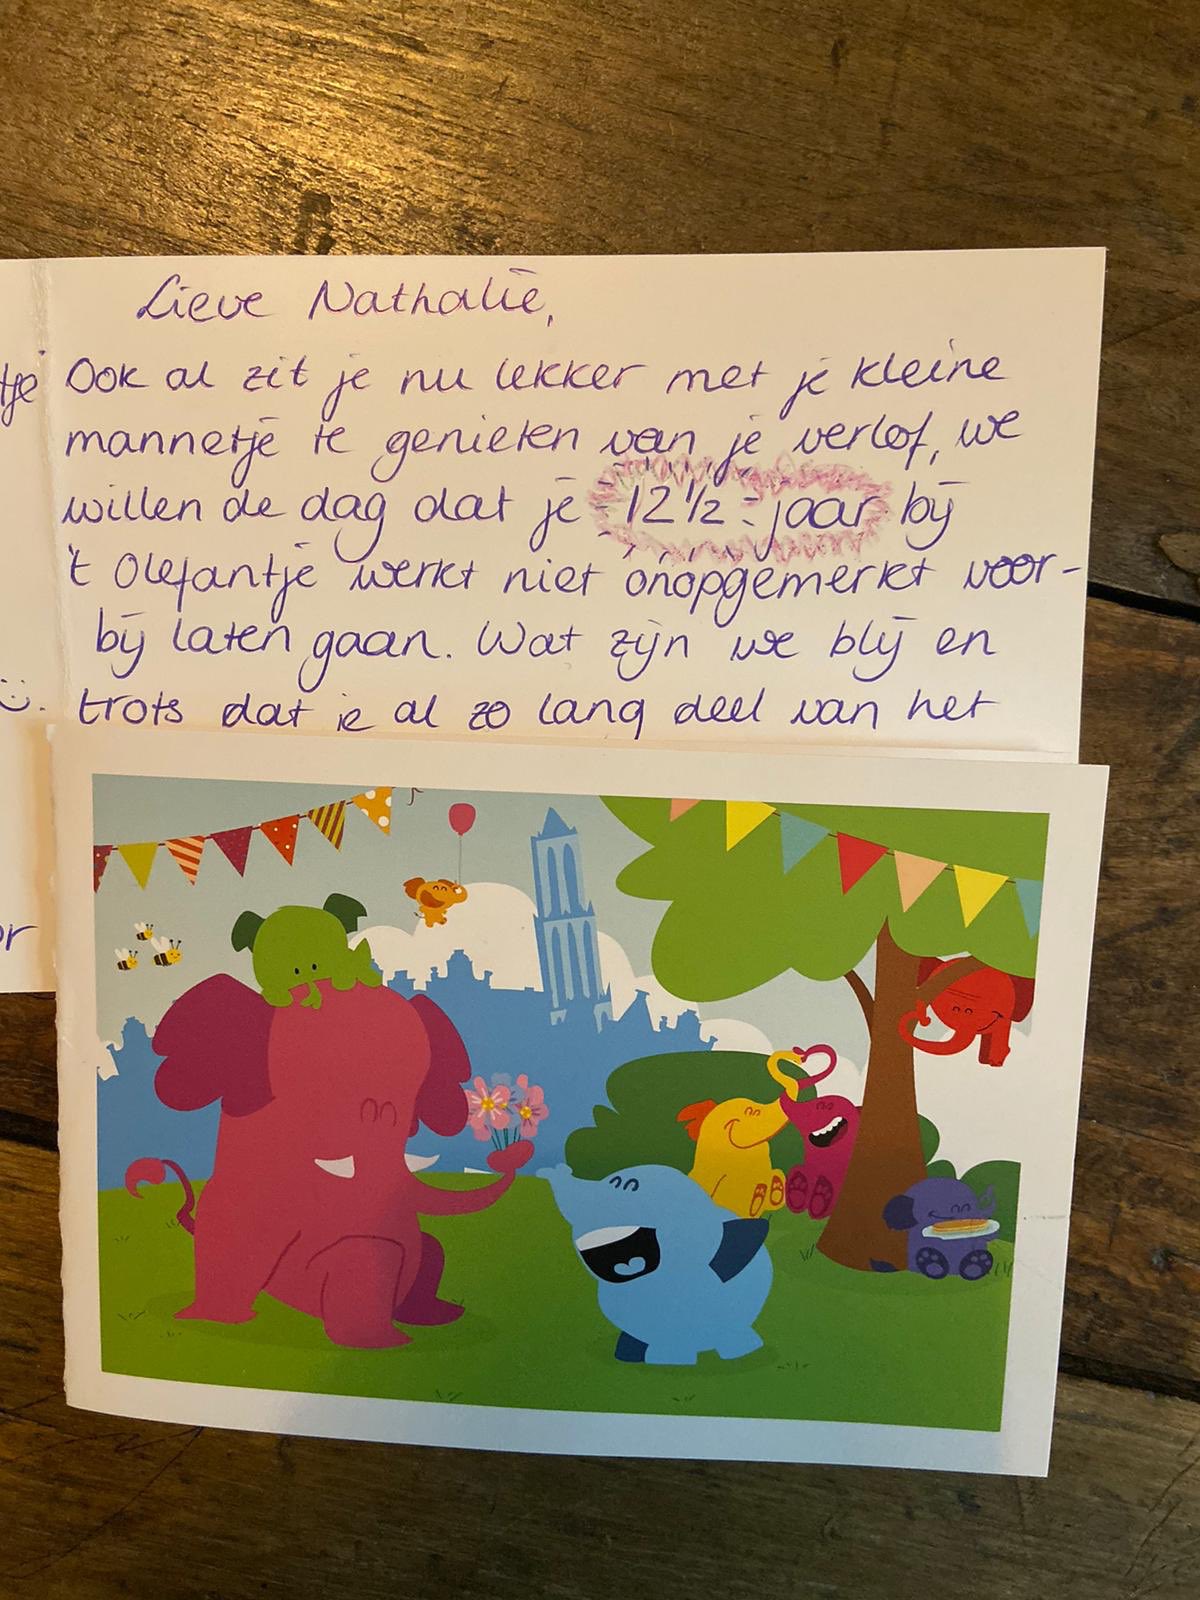 Lieve Nathalie,
tje Ook al zit je nu lekker met je kleine
mannetje te genieten van je verlof, we
willen de dag dat je 12½ jaar bij
't Olefantje werkt niet onopgemerkt voor-
bij laten gaan. Wat zijn we blij en
:). trots dat je al zo lang deel van het
or